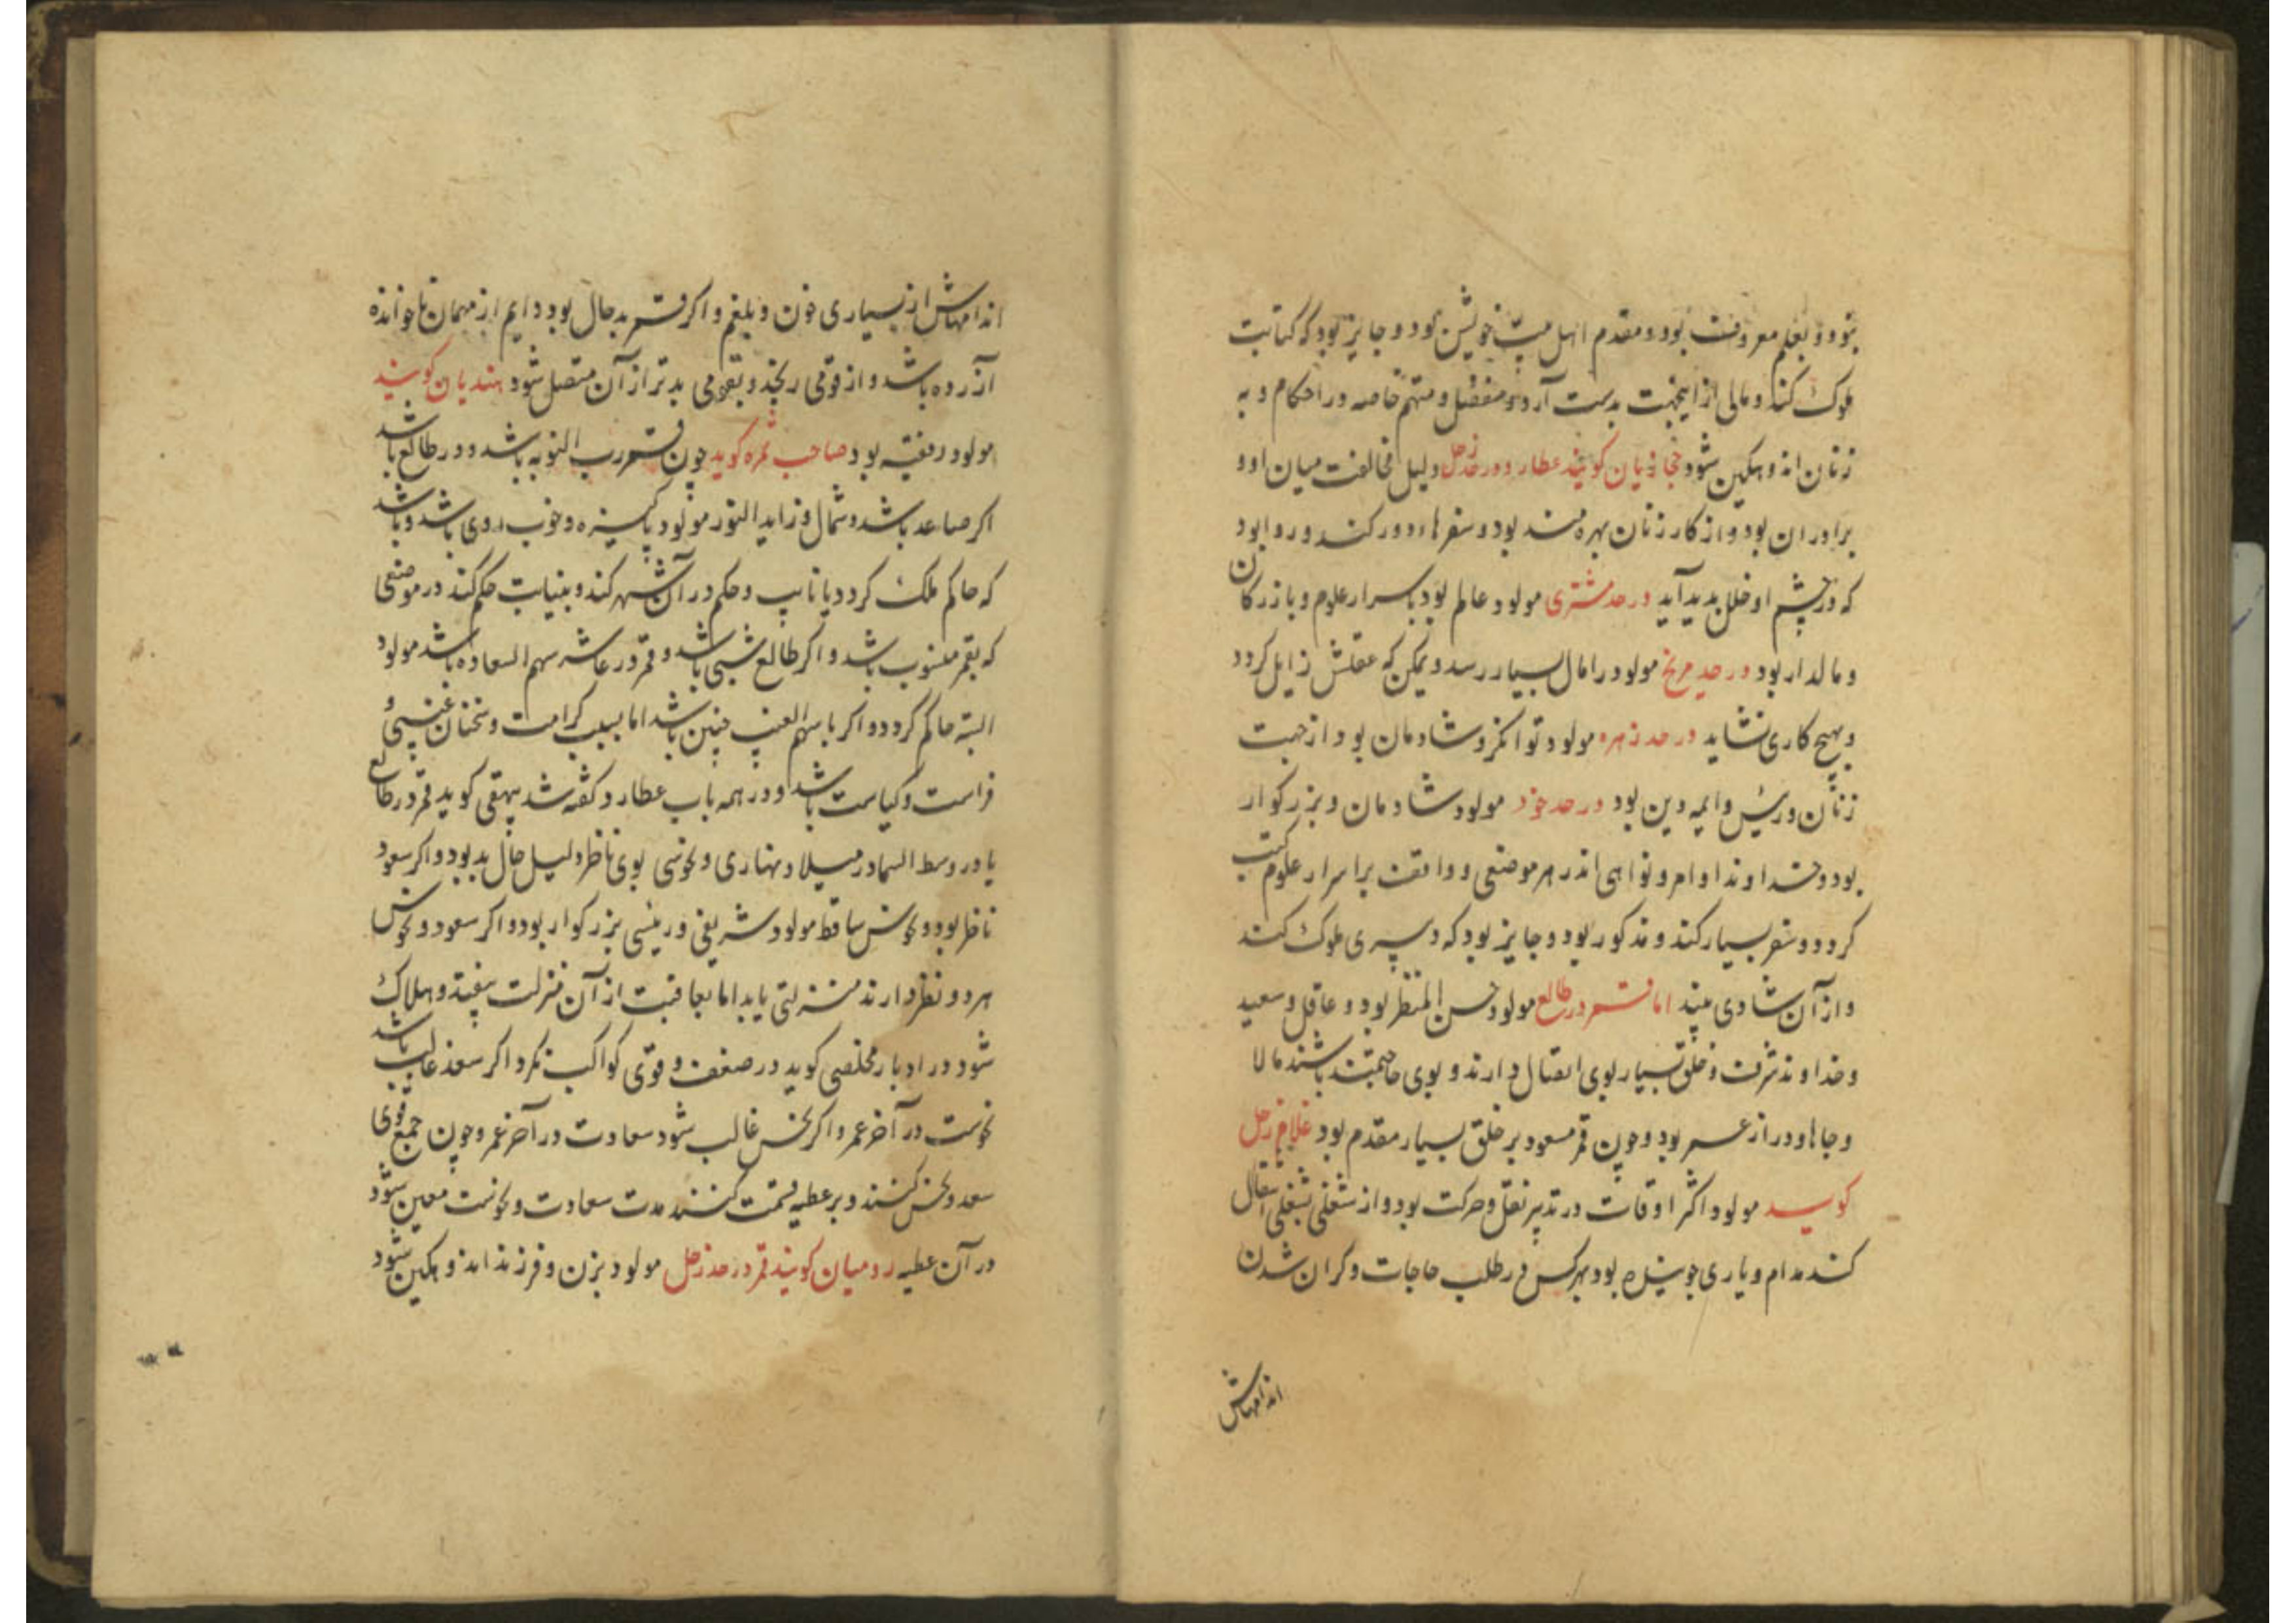 بود و بعلم معروفت بود و مقدم اهل بیت خویش بود و جایز بود که کتابت
ملوک کند و مالی از اینجهت بدست آرد و مفضل و متهم خاصه در احکام و به
زنان اندوهکین شود حجازیان کویند عطارد در حد زحل دلیل مخالفت میان او و
برادران بود و از کار زنان بهره مند بود و سفرها دور کند و روا بود
که در چشم او خلل پدید آید در حد مشتری مولود عالم بود باسرار علوم و بازرکان
و مالدار بود در حد مریخ مولود را مال بسیار رسد و ممکن که عقلش زایل کردد
و بهیچ کاری نشاید در حد زهره مولود توانکر و شادمان بود از جهت
زنان و رئیس و ایمه دین بود در حد خود مولود شادمان و بزرکوار
بود و خداوند اوامر و نواهی اندر هر موضعی و واقف بر اسرار علوم کتب
کردد و سفر بسیار کند و مذکور بود و جایز بود که دبیری ملوک کند
و از آن شادی بیند اما قمر در طالع مولود حسن المنظر بود و عاقل و سعید
و خداوند شرف و خلق بسیار بوی اتصال دارند و بوی حاجتمند باشند مالا
و جاها و دراز عمر بود و چون قمر مسعود بر خلق بسیار مقدم بود غلام زحل
کوید مولود اکثر اوقات در تدبیر نقل و حرکت بود و از شغلی بشغلی انتقال
کند مدام و یاری جوینده بود بهرکس در طلب حاجات و کران شدن
اندامهاش
اندامهاش از بسیاری خون و بلغم و اکر قمر بدحال بود دایم از مهمان ناخوانده
آزرده باشد و از قومی رنجد و بقومی بدتر از آن متصل شود هندیان کویند
مولود فقیه بود صاحب ثمره کوید چون قمر رب النوبه باشد و در طالع باشد
اکر صاعد باشد و شمال و زاید النور مولود پاکیزه و خوب روی باشد و باشد
که حاکم ملک کردد یا نایب و حکم در آن شهر کند و بنیابت حکم کند در موضعی
که بقمر منسوب باشد و اکر طالع شبی باشد و قمر در عاشر سهم السعاده باشد مولود
البته حاکم کردد و اکر با سهم الغیب چنین باشد اما بسبب کرامت و سخنان غیبی و
فراست و کیاست باشد و در همه باب عطارد کفته شد بیهقی کوید قمر در طالع
یا در وسط السما در میلاد نهاری و نحوسی بوی ناظر دلیل حال بد بود و اکر سعود
ناظر بود و نحوس ساقط مولود شریفی و رئیسی بزرکوار بود و اکر سعود و نحوس
هر دو نظر دارند منزلتی یابد اما بعاقبت از آن منزلت بیفتد و هلاک
شود در ادبار مخلصی کوید در ضعف و قوی کواکب نکرد اکر سعد غالب باشد
نحوست در آخر عمر و اکر نحس غالب شود سعادت در آخر عمر و چون جمع قوی
سعد و نحس کنند و بر عطیه قسمت کنند مدت سعادت و نحوست معین شود
در آن عطیه رومیان کویند قمر در حد زحل مولود بزن و فرزند اندوهکین شود